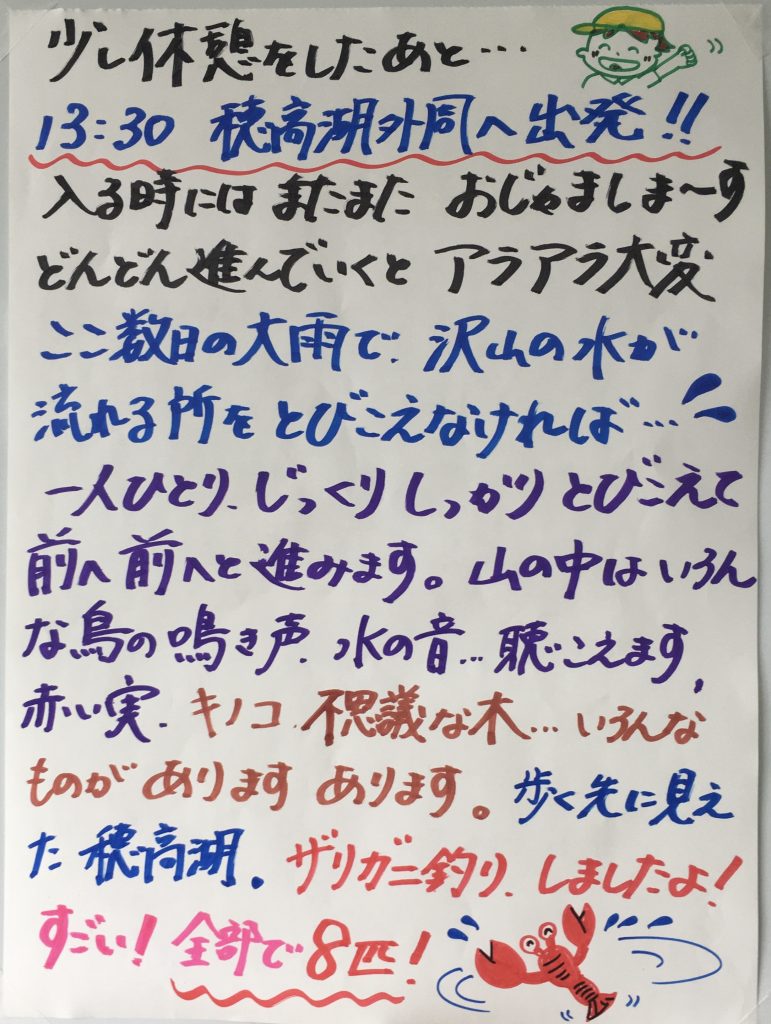 少し休憩をしたあと…
13:30 穂高湖外周へ出発!!
入る時には またまた おじゃましま〜す
どんどん進んでいくと アラアラ大変
ここ数日の大雨で、沢山の水が
流れる所を とびこえなければ…
一人ひとり、じっくりしっかり とびこえて
前へ前へと進みます。山の中はいろん
な鳥の鳴き声、水の音…聴こえます、
赤い実、キノコ、不思議な木…いろんな
ものが あります あります。歩く先に見え
た 穂高湖。ザリガニ釣り、しましたよ!
すごい!全部で8匹!